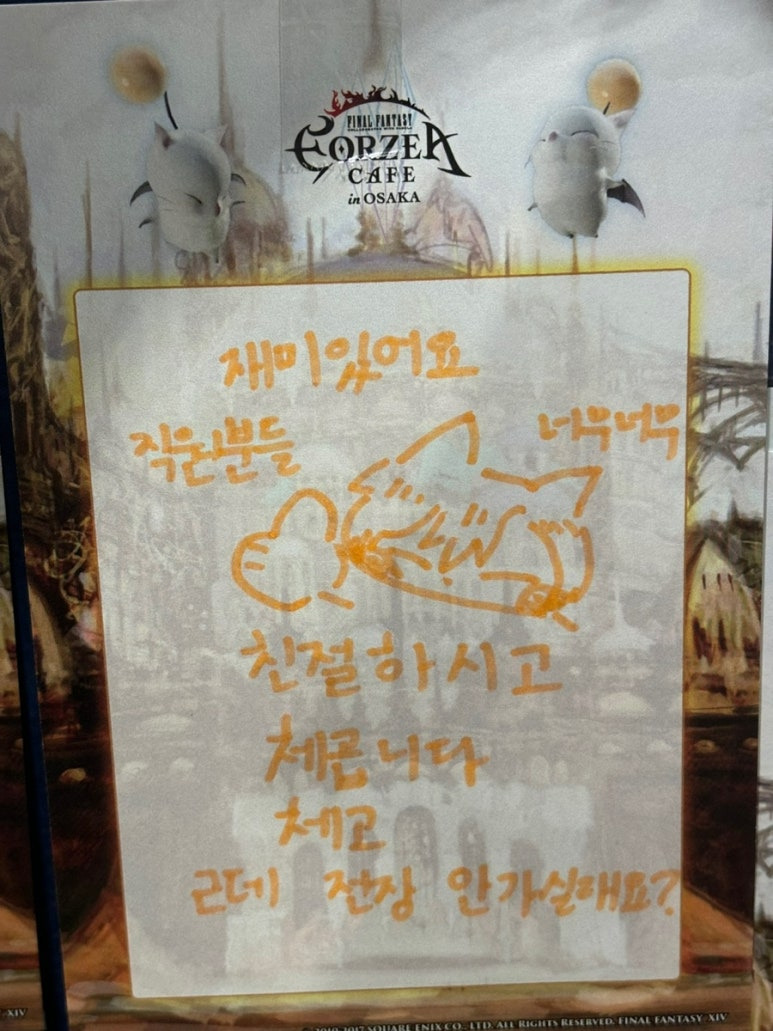 FINAL FANTASY
EORZEA
CAFE
in OSAKA
재미있어요
직원분들 너무너무
친절하시고
체콘니다
체고
근데 전장 안가실래요?
XIV
2010-2017 SQUARE ENIX CO., LTD. ALL RIGHTS RESERVED. FINAL FANTASY XIV